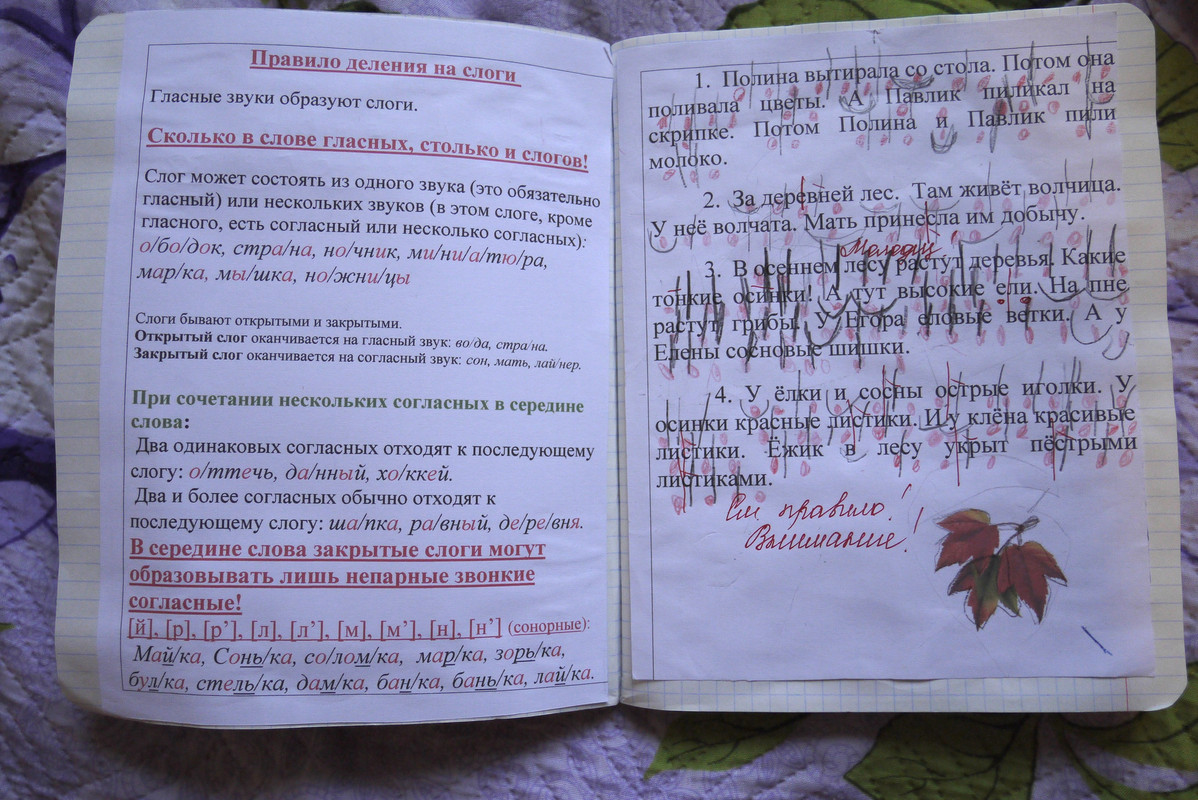 Правило деления на слоги
Гласные звуки образуют слоги.
Сколько в слове гласных, столько и слогов!
Слог может состоять из одного звука (это обязательно
гласный) или нескольких звуков (в этом слоге, кроме
гласного, есть согласный или несколько согласных):
о/бо/док, стра/на, но/чник, ми/ни/а/тю/ра,
мар/ка, мы/шка, но/жни/цы
Слоги бывают открытыми и закрытыми.
Открытый слог оканчивается на гласный звук: во/да, стра/на.
Закрытый слог оканчивается на согласный звук: сон, мать, лай/нер.
При сочетании нескольких согласных в середине
слова:
Два одинаковых согласных отходят к последующему
слогу: о/ттечь, да/нный, хо/ккей.
Два и более согласных обычно отходят к
последующему слогу: ша/пка, ра/вный, де/ре/вня.
В середине слова закрытые слоги могут
образовывать лишь непарные звонкие
согласные!
[й], [р], [р’], [л], [л’], [м], [м’], [н], [н’] (сонорные):
Май/ка, Сонь/ка, со/лом/ка, мар/ка, зорь/ка,
бул/ка, стель/ка, дам/ка, бан/ка, бань/ка, лай/ка.
1. Полина вытирала со стола. Потом она
поливала цветы. А Павлик пиликал на
скрипке. Потом Полина и Павлик пили
молоко.
2. За деревней лес. Там живёт волчица.
У неё волчата. Мать принесла им добычу.
Молодец!
3. В осеннем лесу растут деревья. Какие
тонкие осинки! А тут высокие ели. На пне
растут грибы. У Егора еловые ветки. А у
Елены сосновые шишки.
4. У ёлки и сосны острые иголки. У
осинки красные листики. И у клёна красивые
листики. Ёжик в лесу укрыт пёстрыми
листиками.
См правило!
Внимание!